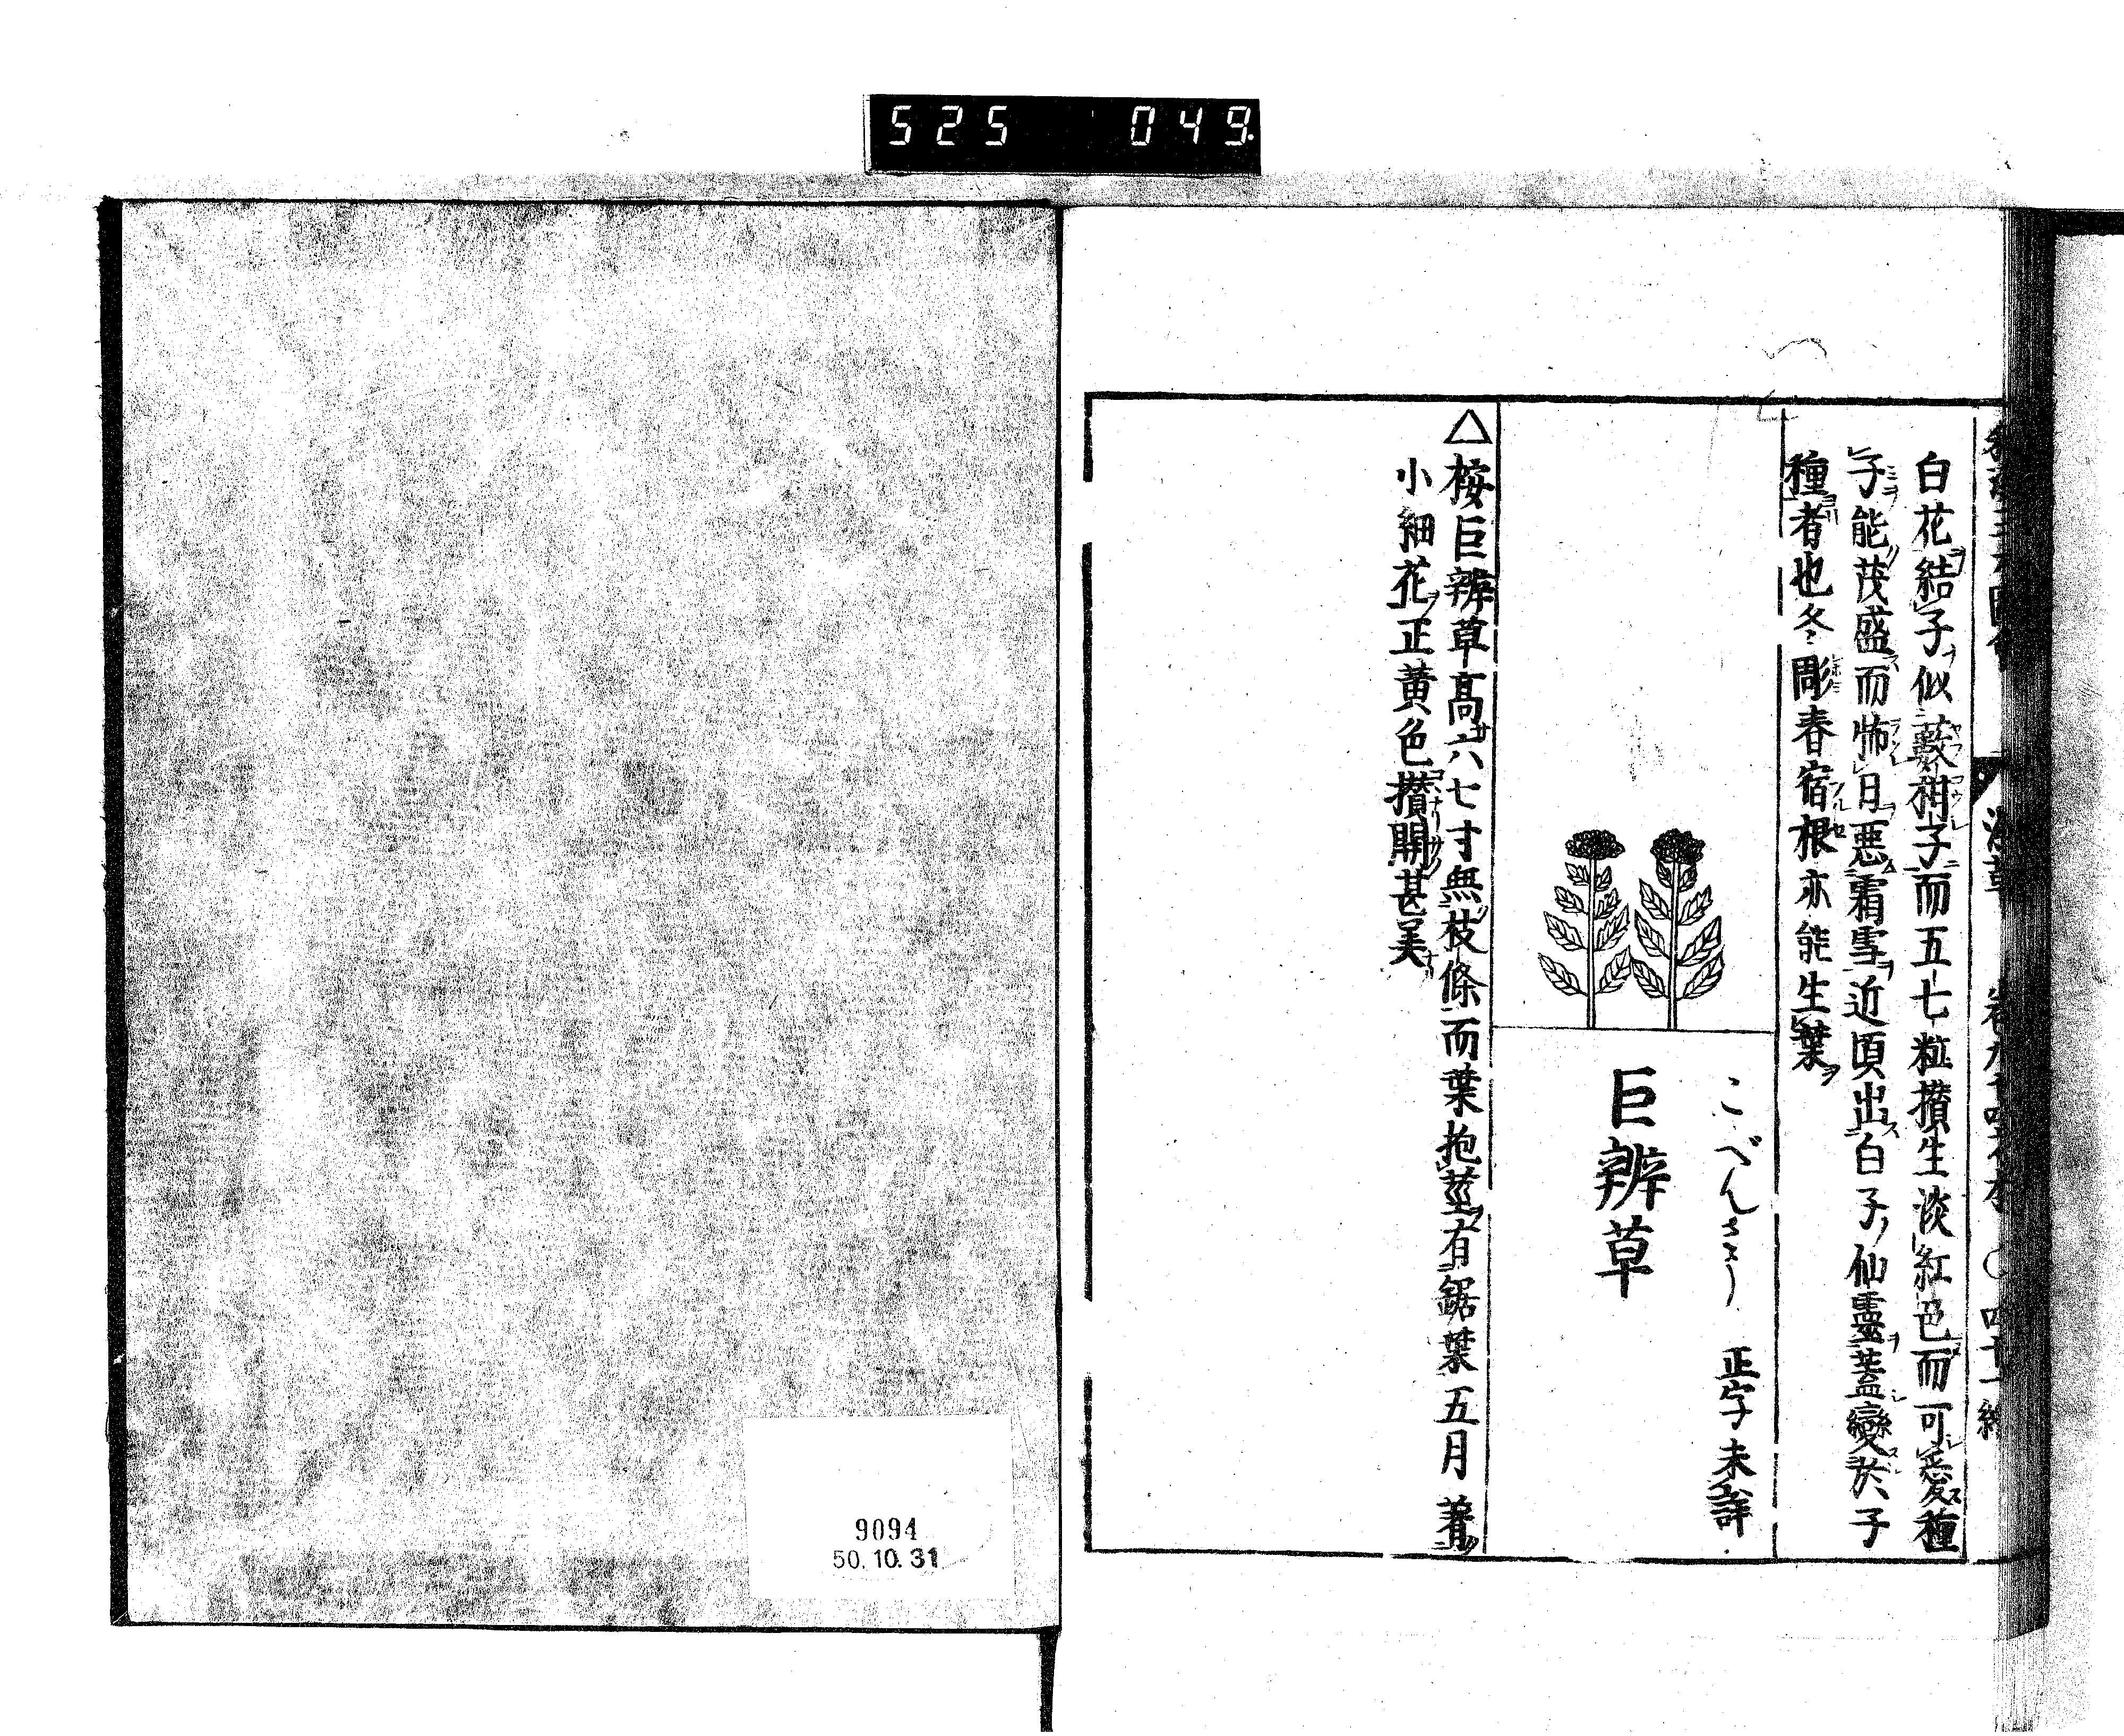 525 049
白花結子似藪柑子而五七粒攅生淡紅色而可愛種
子能茂盛而怖日悪霜雪近頃出白子仙靈蓋變於子
種者也冬彫春宿根亦能生葉
こべんさう 正字未詳
巨辨草
△桉巨辨草高六七寸無枝條而葉抱莖有鋸葉五月着
小細花正黄色攅開甚美
9094
50.10.31